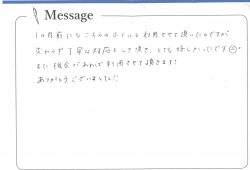 Message
1ヶ月前にもこちらのホテルを利用させて頂いたのですが
変わらず丁寧な対応をして頂き、とても嬉しかったです
また機会があれば利用させて頂きます!
ありがとうございました!!